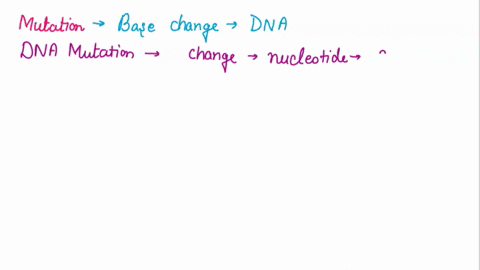 Mutation → Base change → DNA
DNA Mutation → change → nucleotide →